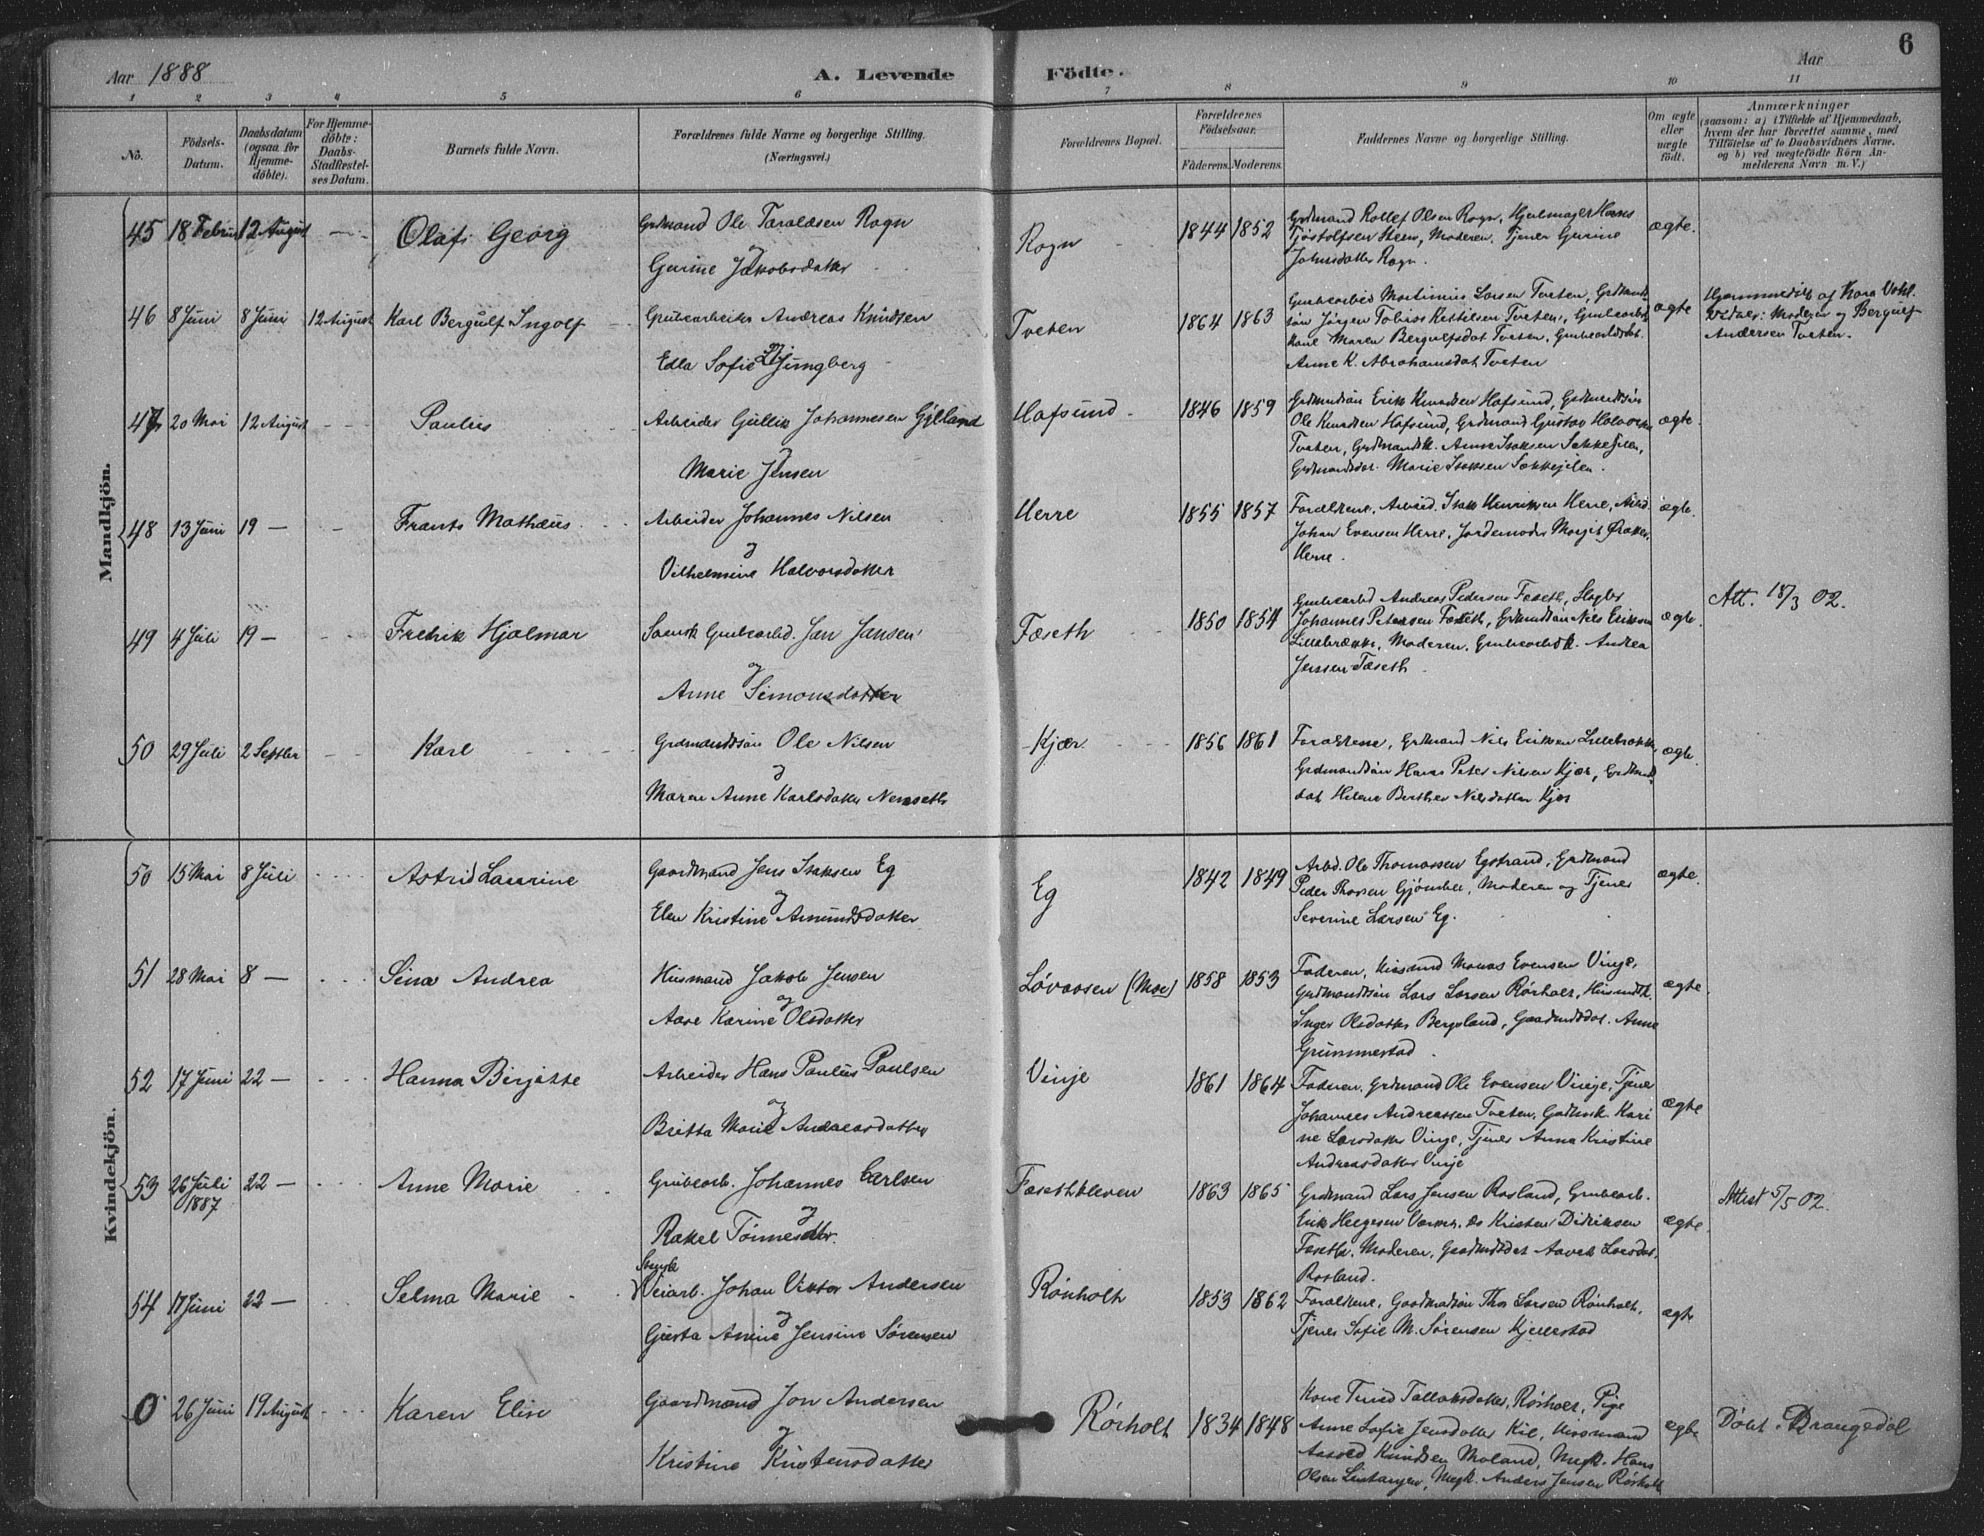 Aar 1888
A. Levende Födte.
Aar
6
1 2 3 4 5 6 7 8 9 10 11
No. Födsels-Datum. Daabsdatum (ogsaa for Hjemmedöbte). For Hjemmedöbte: Daabs-Stadfæstelses Datum. Barnets fulde Navn. Forældrenes fulde Navne og borgerlige Stilling. (Næringsvei.) Forældrenes Bopæl. Forældrenes Födselsaar. Faderens. Moderens. Faddernes Navne og borgerlige Stilling. Om ægte eller uægte födt. Anmærkninger (saasom: a) i Tilfælde af Hjemmedaab, hvem der har forrettet samme, med Tilföielse af to Daabsvidners Navne, og b) ved uægtefödte Börn Anmelderens Navn m. V.)
Mandkjön.
45 18 Februar 12 August Olaf Georg Grdmand Ole Taraldsen Rogn
og
Gurine Jakobsdatter
Rogn 1844 1852 Grdmand Rollef Olsen Rogn, Hjulmager Hans
Tjöstolfsen Steen, Moderen, Tjener Gurine
Johnsdatter Rogn.
ægte.
46 8 Juni 8 Juni 12 August Karl Bergulf Ingolf Grubearbeider Andreas Knudsen
og
Edla Sofie Ljungberg
Tveten 1864 1863 Grubearbeid Martinius Larsen Tveten, Grdmandssön Jörgen Tobias Kettilsen Tveten, Grubearbkone Maren Bergulfsdat Tveten, Grubearbdsdat.
Anne K. Abrahamsdat Tveten
ægte
Hjemmedöbt af Kara Vohl.
Vidner: Moderen og Bergulf
Andersen Tveten.
47 20 Mai 12 August Paulus Arbeider Gullik Johannesen Gjelland
og
Marie Jensen
Hafsund 1846 1859 Grdmandssön Erik Knudsen Hafsund, Grdmandssön
Ole Knudsen Hafsund, Grdmand Gustav Halvorsen
Tveten, Grdmandsk. Anne Isaksen Sakkejelen,
Grdmandsdat. Marie Isaksen Sakkejelen.
ægte.
48 13 Juni 19 — Frants Mathæus Arbeider Johannes Nilsen
og
Vilhelmine Halvorsdatter
Herre 1855 1857 Forældrene, Arbeid. Isak Henriksen Herre, Arbd.
Johan Evensen Herre, Jordemoder Margit
Herre.
ægte.
49 4 Juli 19 — Fredrik Hjalmar Svensk Grubearbd. Jan Jansen
og
Anne Simonsdatter
Faseth 1850 1854 Grubearbd Andreas Pedersen Faseth, Slagter
Johannes Petersen Faseth, Grdmandssön Nils Eriksen
Lillebrække, Moderen, Grubearbdk. Andrea
Jenssen Faseth.
ægte.
Att. 18/3 02.
50 29 Juli 2 Septbr Karl Grdmandssön Ole Nilsen
og
Maren Anne Karlsdatter Nenseth
Kjær 1856 1861 Forældrene, Grdmand Nils Eriksen Lillebrække,
Grdmandssön Hans Peter Nilsen Kjær, Grdmandsdat Helene Berthea Nilsdatter Kjær
ægte.
Kvindekjön.
50 15 Mai 8 Juli Astrid Laurine Gaardmand Jens Isaksen Eg
og
Elen Kristine Amundsdatter
Eg 1842 1849 Arbd. Ole Thomassen Egstrand, Grdmand
Peder Thorsen, Moderen og Tjener
Severine Larsen Eg.
ægte.
51 28 Mai 8 — Sina Andrea Husmand Jakob Jensen
og
Aase Karine Olsdatter
Løvaasen (Moe) 1858 1853 Faderen, Husmand Evensen Vinje,
Grdmandssön Lars Larsen Rørholt, Husmdk.
Inger Olsdatter Bergsland, Gaardmdsdat. Anne
Grummestad.
ægte
52 17 Juni 22 — Hanna Birgitte Arbeider Hans Paulus Paulsen
og
Britta Marie Andreasdatter
Vinje 1861 1864 Faderen, Grdmand Ole Evensen Vinje, Tjener
Johannes Andreassen Tveten, Grdmk. Karine Larsdatter Vinje, Tjener Anna Kristine
Andreasdatter Vinje
ægte
53 26 Juli 1887 22 — Anne Marie Grubearb. Johannes Carlsen
og
Rakel Tönnesdtr.
Fasethkleven 1863 1865 Grdmand Lars Jensen Rosland, Grubearb.
Erik Helgesen, Kristen Didriksen
Faseth, Moderen, Gaardmdsdat Larsdat.
Rosland.
ægte
Attest 5/5 02.
54 17 Juni 22 — Selma Marie Svensk
Veiarb. Johan Viktor Andersen
og
Gusta Amine Jensine Sørensen
Rønholt 1853 1862 Forældrene, Gaardmdssön Thor Larsen Rönholt,
Tjener Sofie M. Sørensen Kjellestad
ægte
0 26 Juni 19 August Karen Elise Gaardmand Jon Andersen
og
Kristine Kristensdatter
Rörholt 1834 1848 Kone Turid Tallaksdatter, Rørholt, Pige
Anne Sofie Jensdatter Kil, Husmand
Knudsen Moland, Ungk. Hans
Olsen, Ungk. Anders Jensen Rørholt
ægte
Døbt i Drangedal